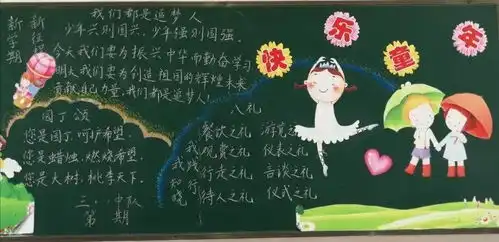 新学期
新征程
我们都是追梦人
少年兴则国兴,少年强则国强。
今天我们要为振兴中华而勤奋学习
明天我们要为创造祖国的辉煌未来
贡献自己力量,我们都是追梦人!
园丁颂
您是园丁,呵护希望。
您是蜡烛,燃烧希望。
您是大树,桃李天下。
三 中队
第 期
快乐童年
八礼
我 我 和 晓
餐饮之礼 游览之礼
观赏之礼 仪表之礼
行走之礼 言谈之礼
待人之礼 仪式之礼